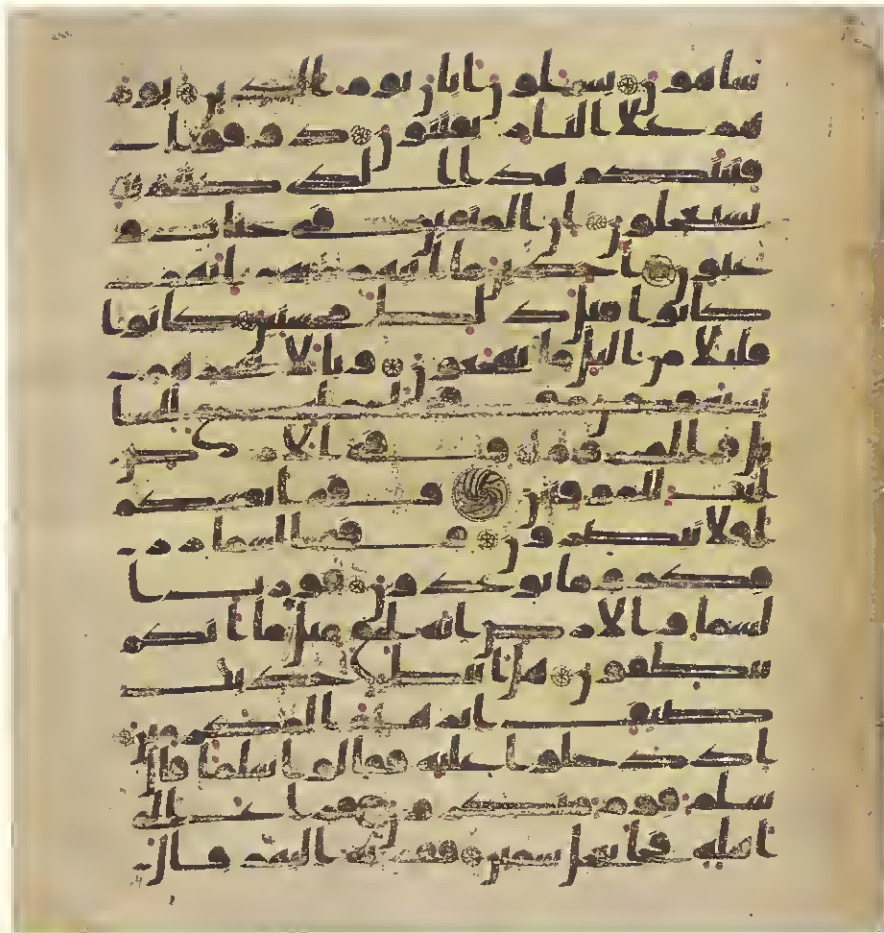 ساهون يسلون ايان يوم الدين يوم
هم على النار يفتنون ذوقوا
فتنتكم هذا الذي كنتم به
تستعجلون ان المتقين في جنات و
عيون اخذين ما اتيهم ربهم انهم
كانوا قبل ذلك محسنين كانوا
قليلا من اليل ما يهجعون وبالاسحر هم
يستغفرون وفي اموالهم حق للسا
ئل والمحروم وفي الارض
ايت للموقنين وفي انفسكم
افلا تبصرون وفي السما رز
قكم وما توعدون فورب ا
لسما والارض انه لحق مثل ما انكم
تنطقون هل اتيك حديث
ضيف ابرهيم المكرمين
اذ دخلوا عليه فقالوا سلما قال
سلم قوم منكرون فراغ الى
اهله فجا بعجل سمين فقربه اليهم قال